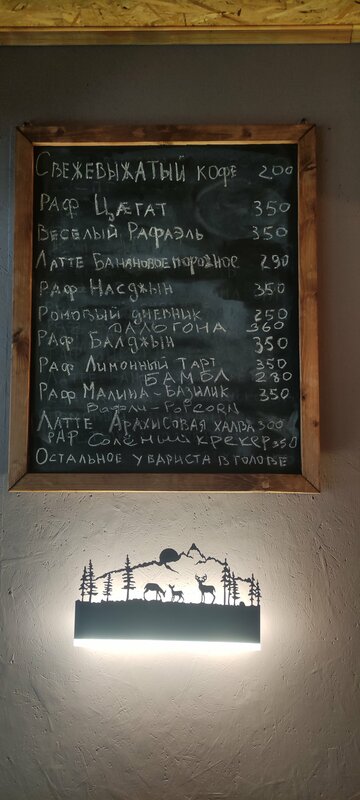 Свежевыжатый кофе 200
Раф Цæгат 350
Веселый Рафаэль 350
Латте Банановое пороžное 290
Раф Насджын 350
Ромовый дневник 250
Дальгона 360
Раф Балджын 350
Раф Лимонный Тарт 350
Бамбл 280
Раф Малина-Базилик 350
Вафли-Popcorn
Латте Арахисовая халва 300
Рар Солёный крекер 350
Остальное у бариста в голове